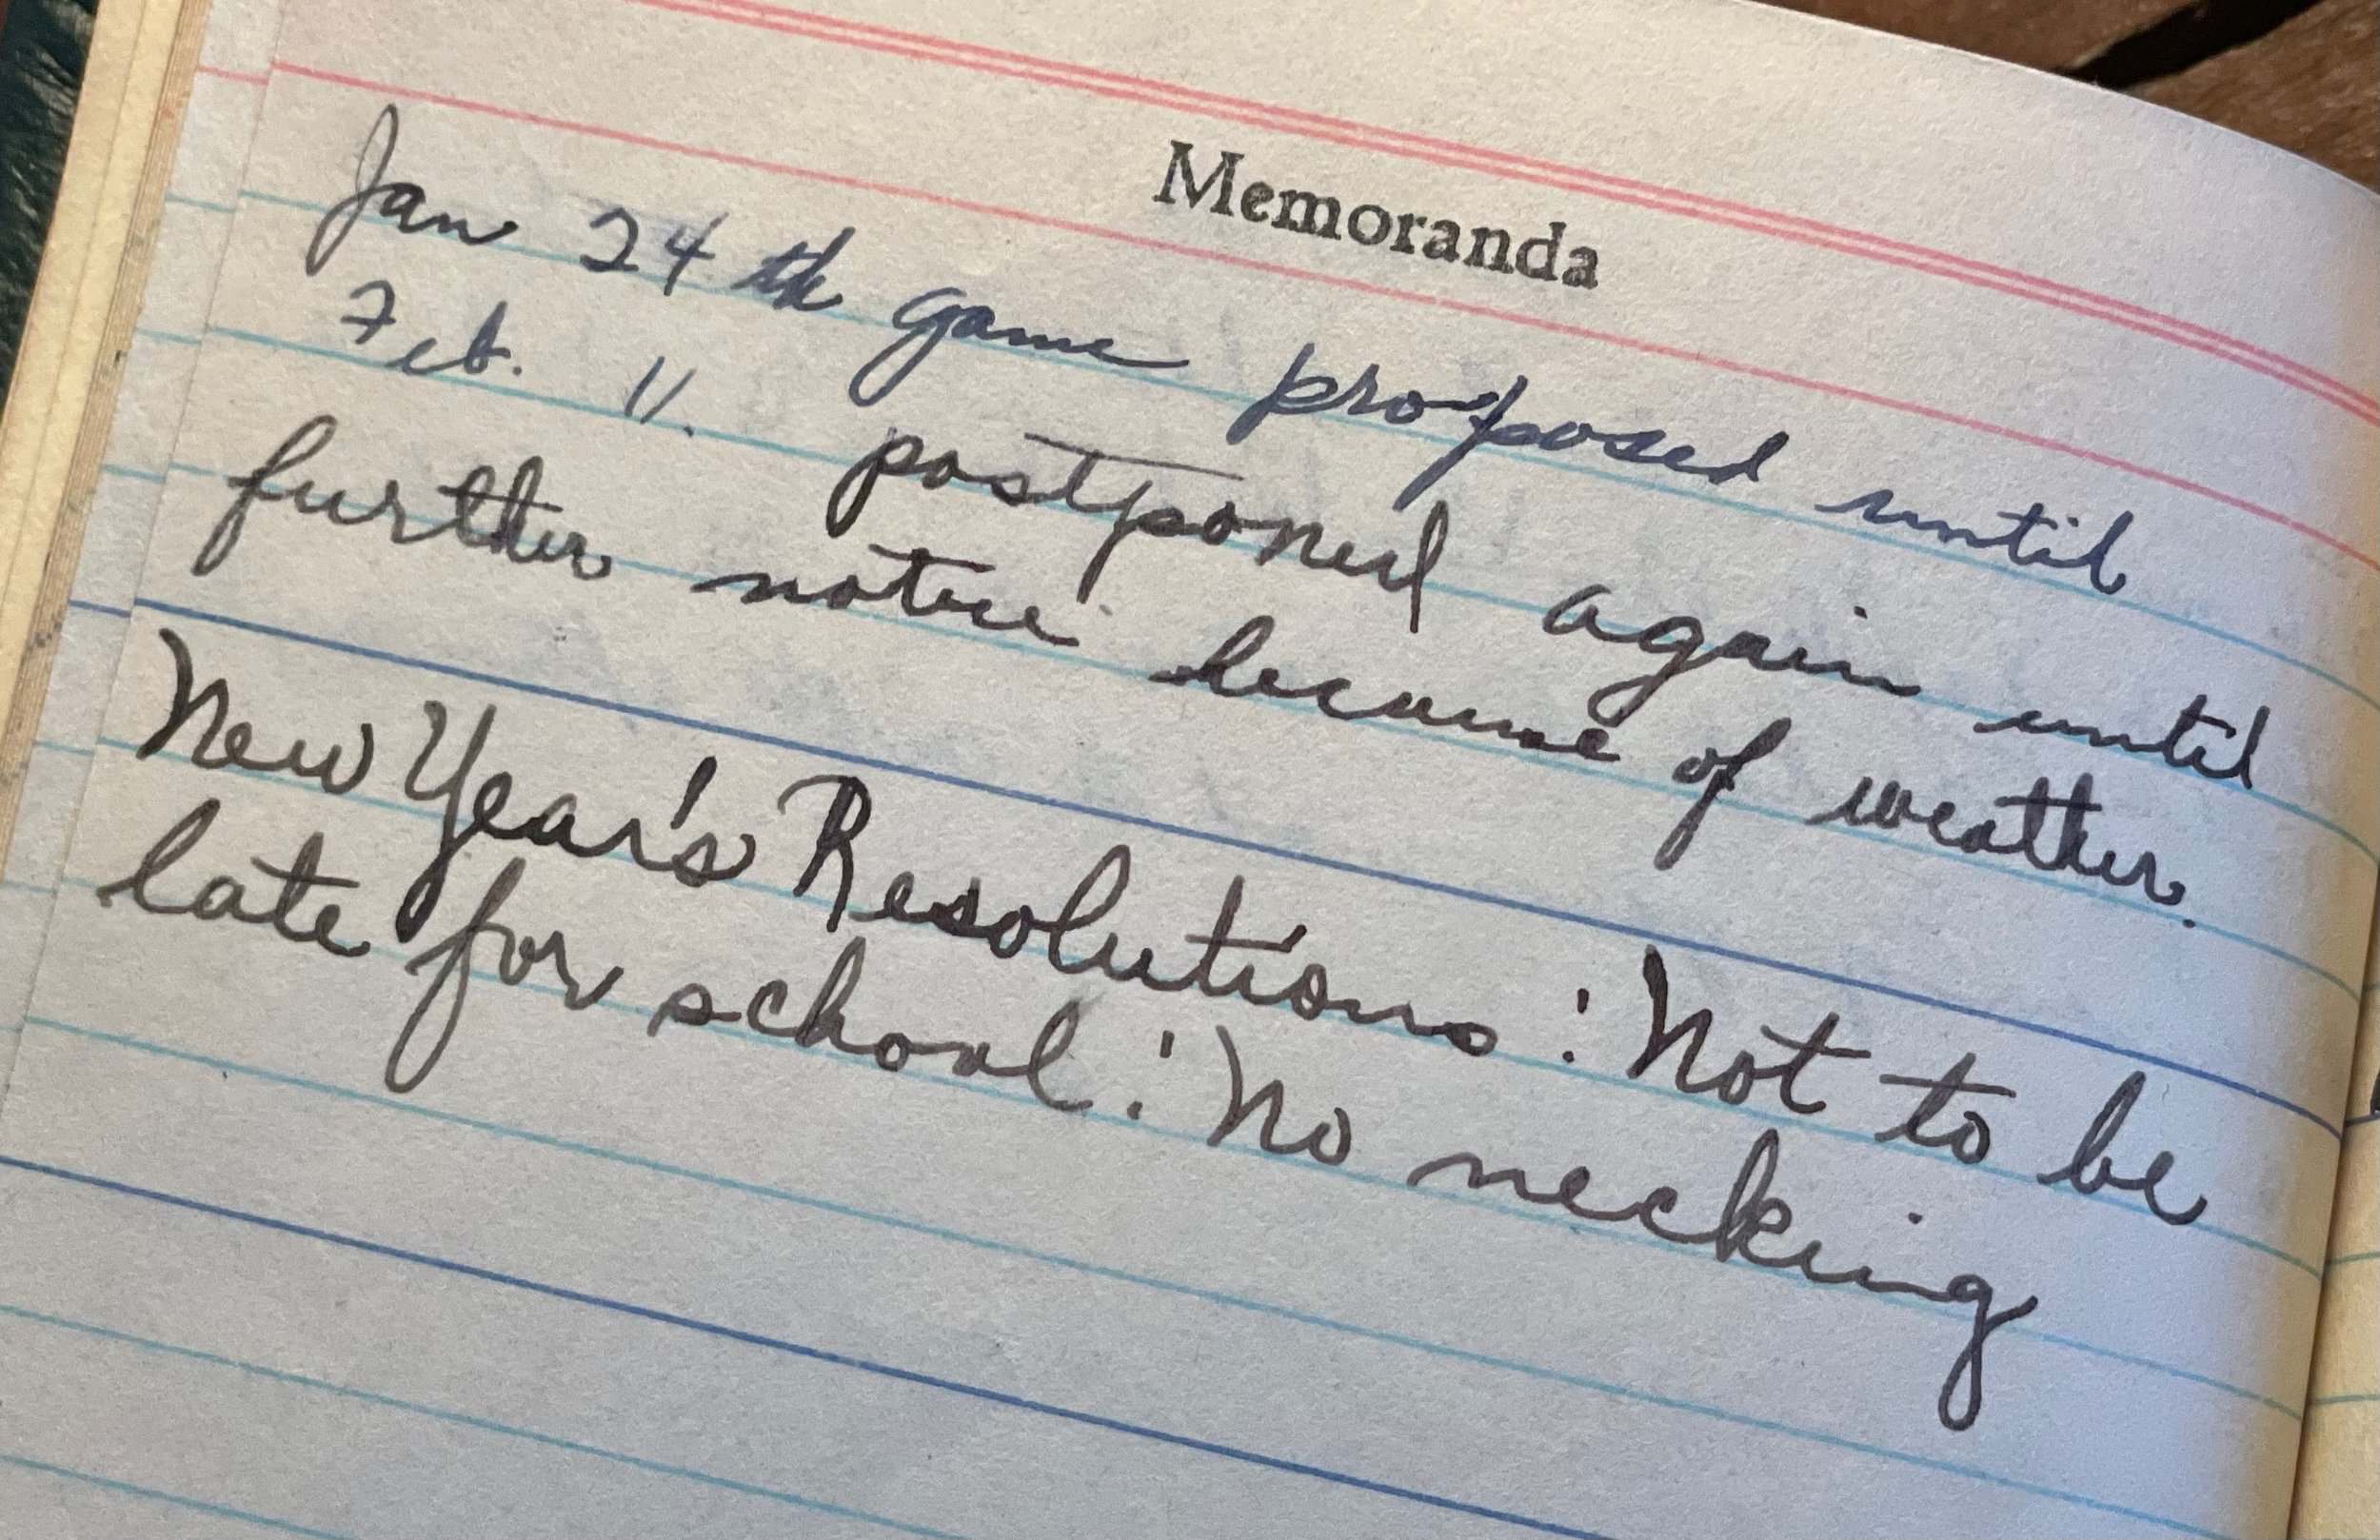 Memoranda
Jan 24th game proposed until
Feb. 11. postponed again until
further notice because of weather.
New Year's Resolutions: Not to be
late for school! No necking